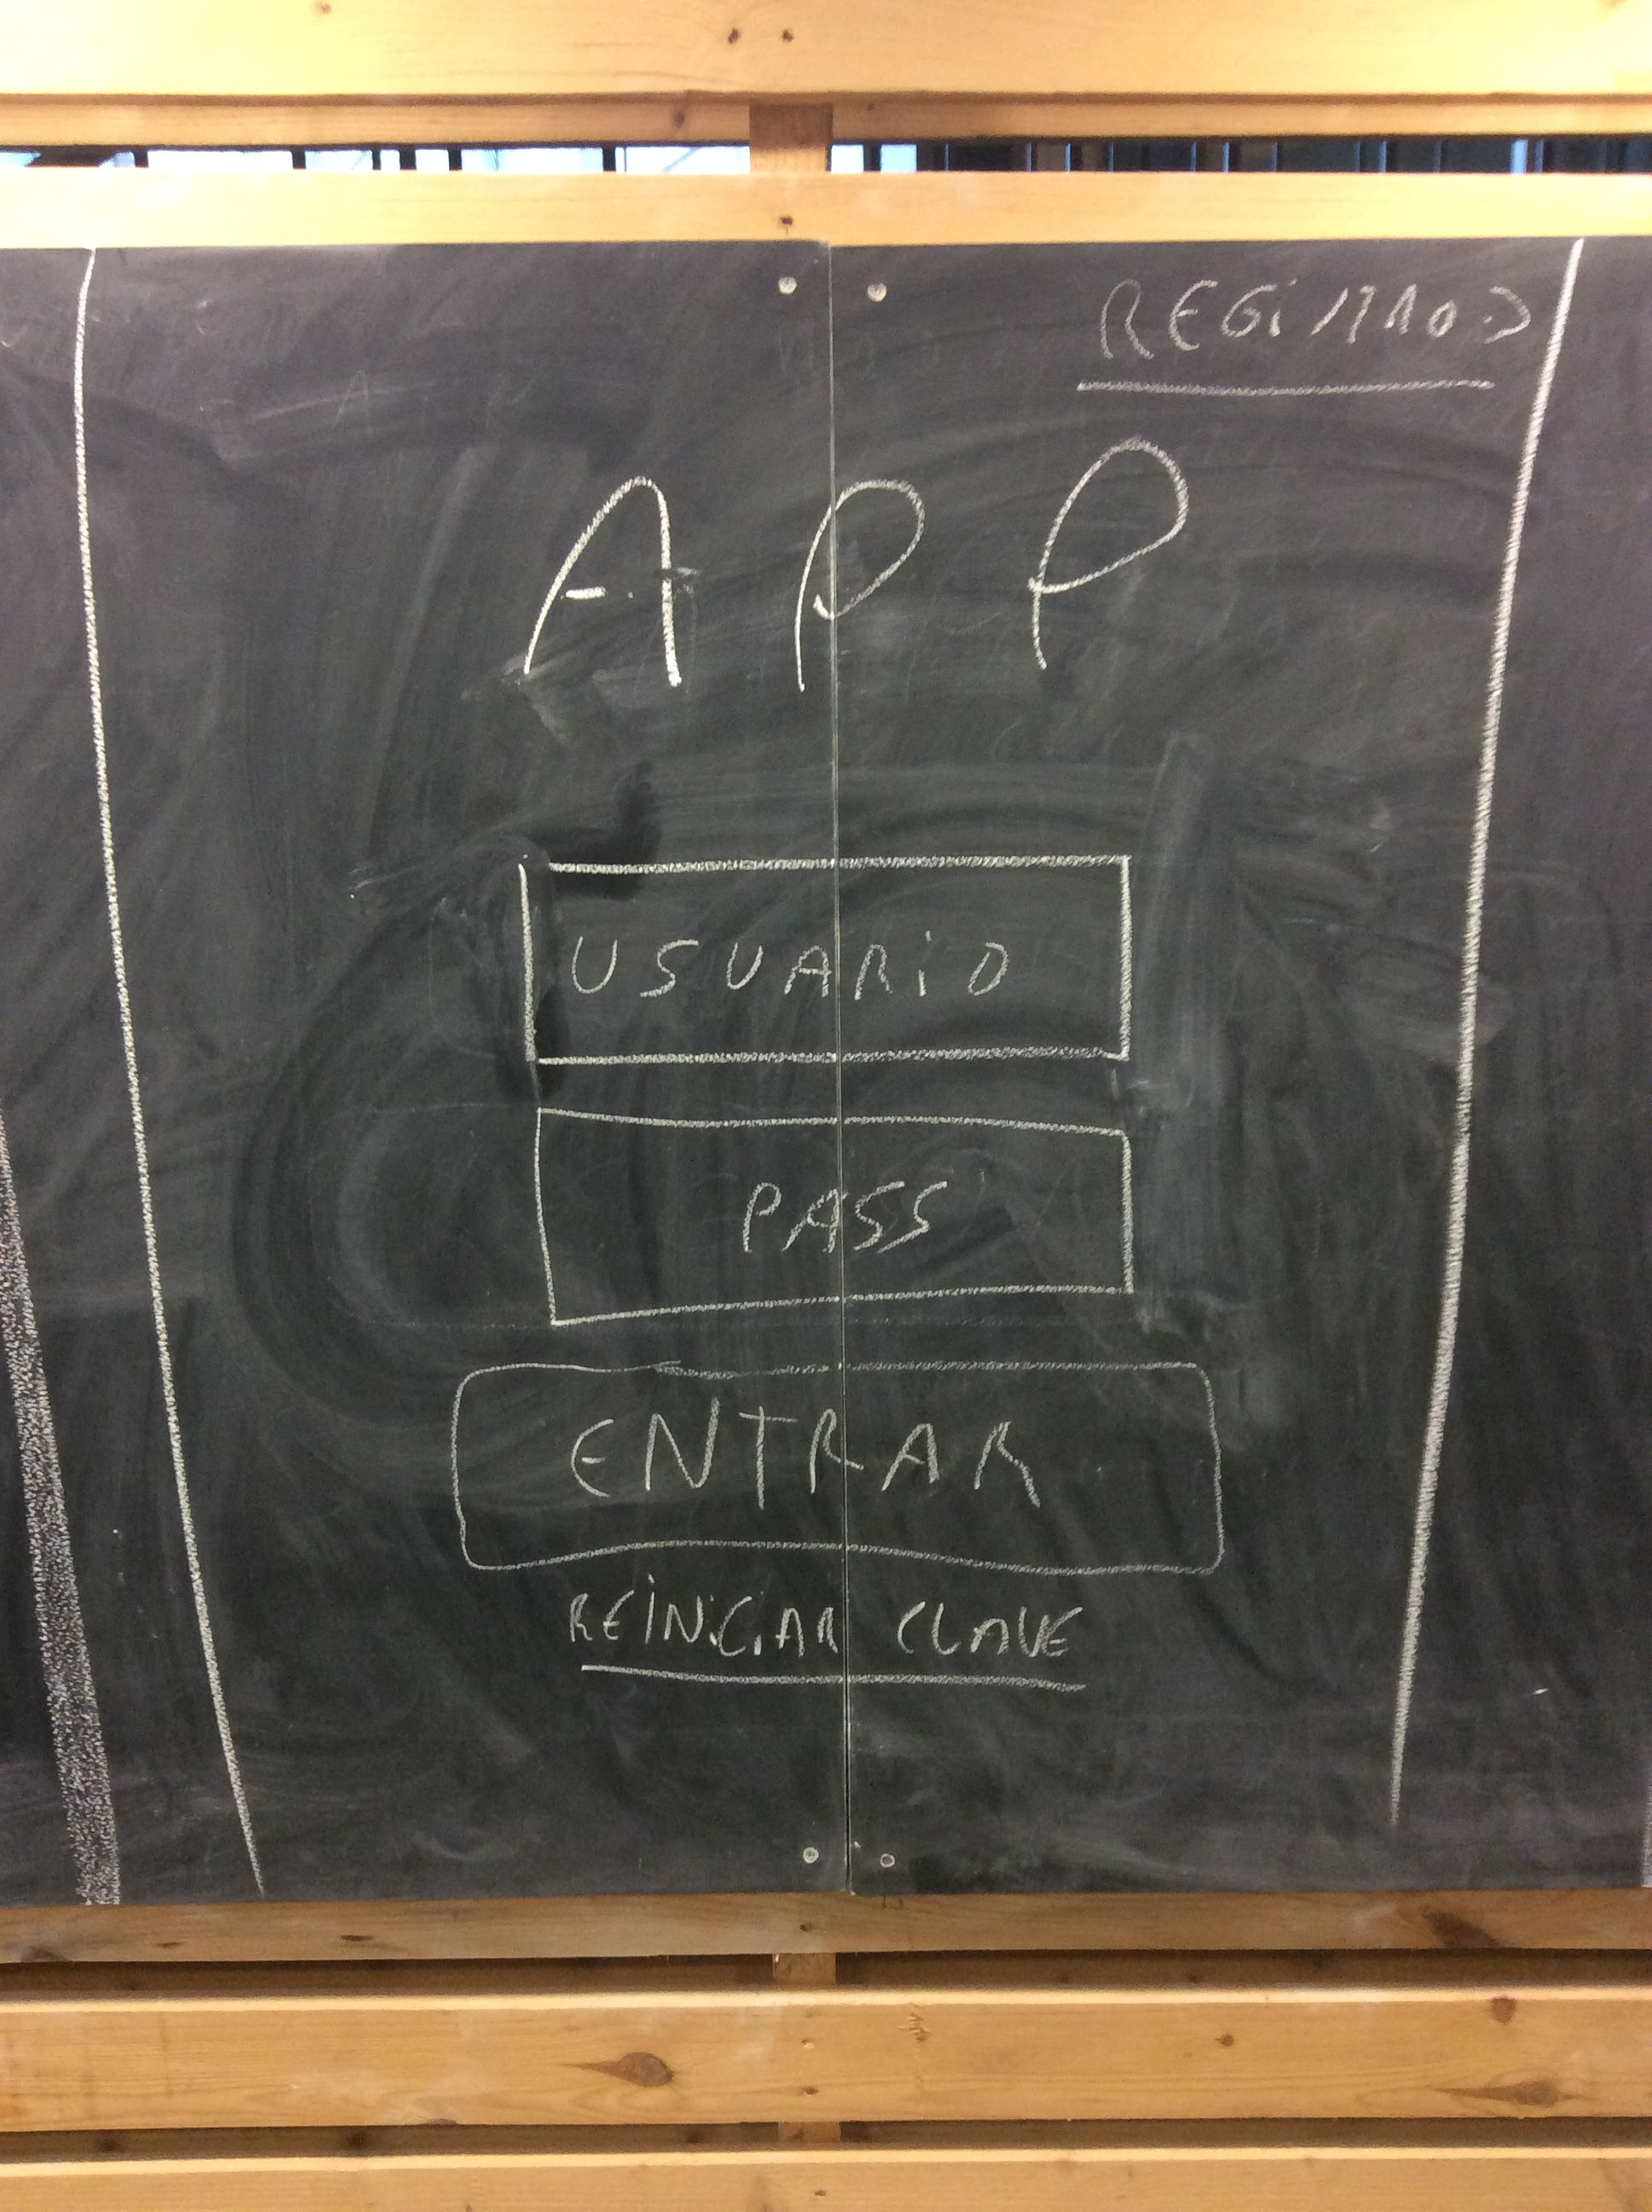 REGISTRO
APP
USUARIO
PASS
ENTRAR
REINICIAR CLAVE